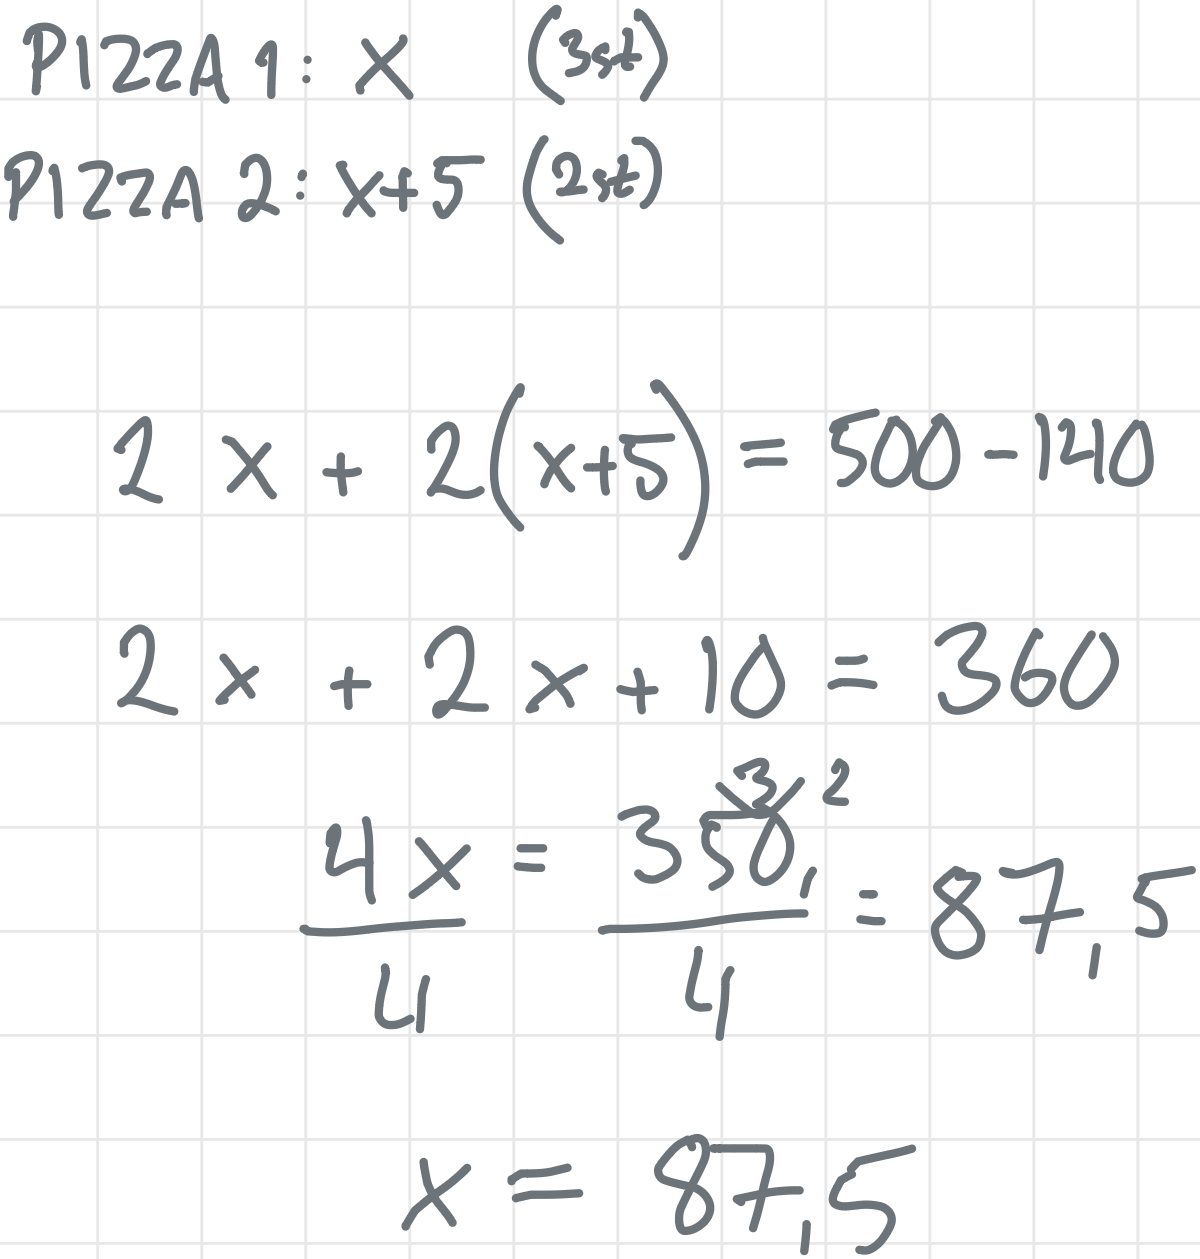 PIZZA 1: x (3st)
PIZZA 2: x+5 (2st)
2x + 2(x+5) = 500-140
2x + 2x + 10 = 360
3 2
4x = 350, = 87,5
4 4
x = 87,5